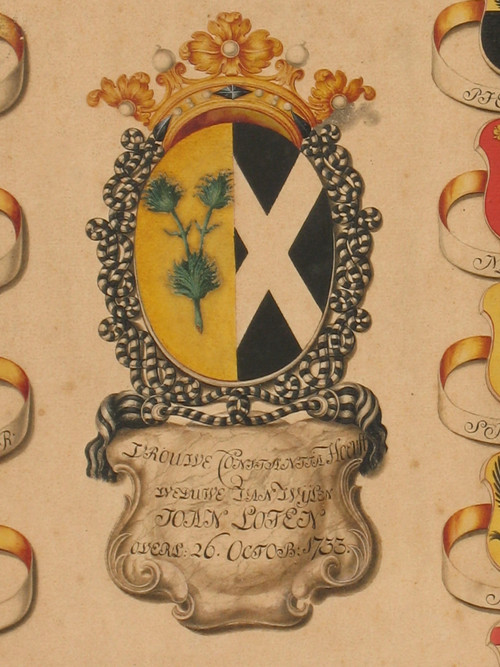 VROUWE CONSTANTIA Hoeuft
WEDUWE VAN WYLEN
JOAN LOTEN
OVERL: 26. OCTOB: 1733.